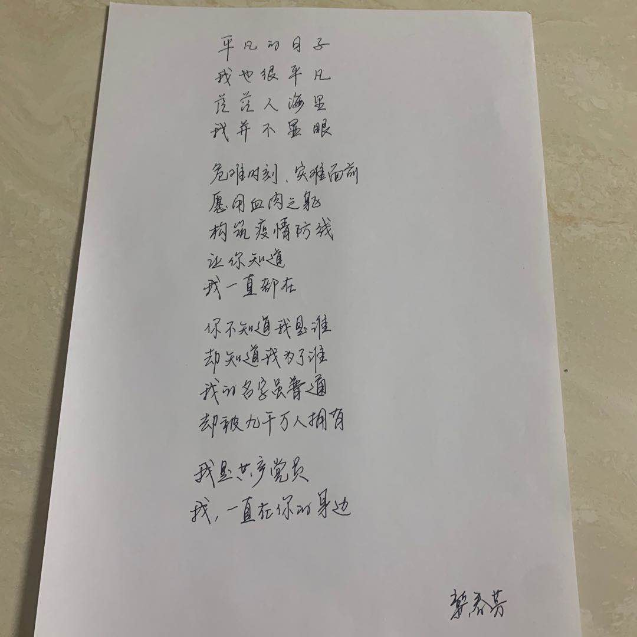 平凡的日子
我也很平凡
茫茫人海里
我并不显眼
危难时刻、灾难面前
愿用血肉之躯
构筑疫情防线
让你知道
我一直都在
你不知道我是谁
却知道我为了谁
我的名字虽普通
却被九千万人拥有
我是共产党员
我，一直在你的身边